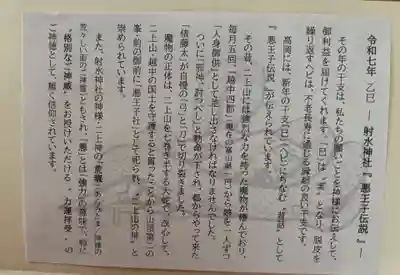 令和七年 乙巳 ― 射水神社『悪王子伝説』―
その年の干支は、私たちの願いごとを神様にお伝えして、
御利益を届けてくれます。「巳」は「実」となり、脱皮を
繰り返すヘビは、不老長寿に通じる縁起の良い干支。
高岡には、新年の干支(巳)〈ヘビ〉にちなむ「昔話」として
『悪王子伝説』が伝えられています。
その昔、二上山には強烈な力を持った魔物が棲んでおり、
毎月五回、「越中四郡」(現在の富山県一円)から娘を一人ずつ
「人身御供」として差し出さなければなりませんでした。
ついに「邪神、討つべし」と勅命が下され、都からやって来た
「俵藤太」が自慢の「弓」と「刀」で切り裂きました。
魔物の正体は、二上山を七巻半する大蛇で、改心して、
二上山・越中の国土を守護すると誓ったことから山頂第二の
峯・前の御前に「悪王子社」として祀られ、「二上山の神」と
崇められています。
また、射水神社の神様・二上神の「荒魂」(あらみたま・神様の
荒々しい面のご神霊)ともされ、「悪」とは「強力」の意味で、特に
"格別なご神威"をお授けいただける、"力運拝受"の
ご神徳として、篤く信仰されています。